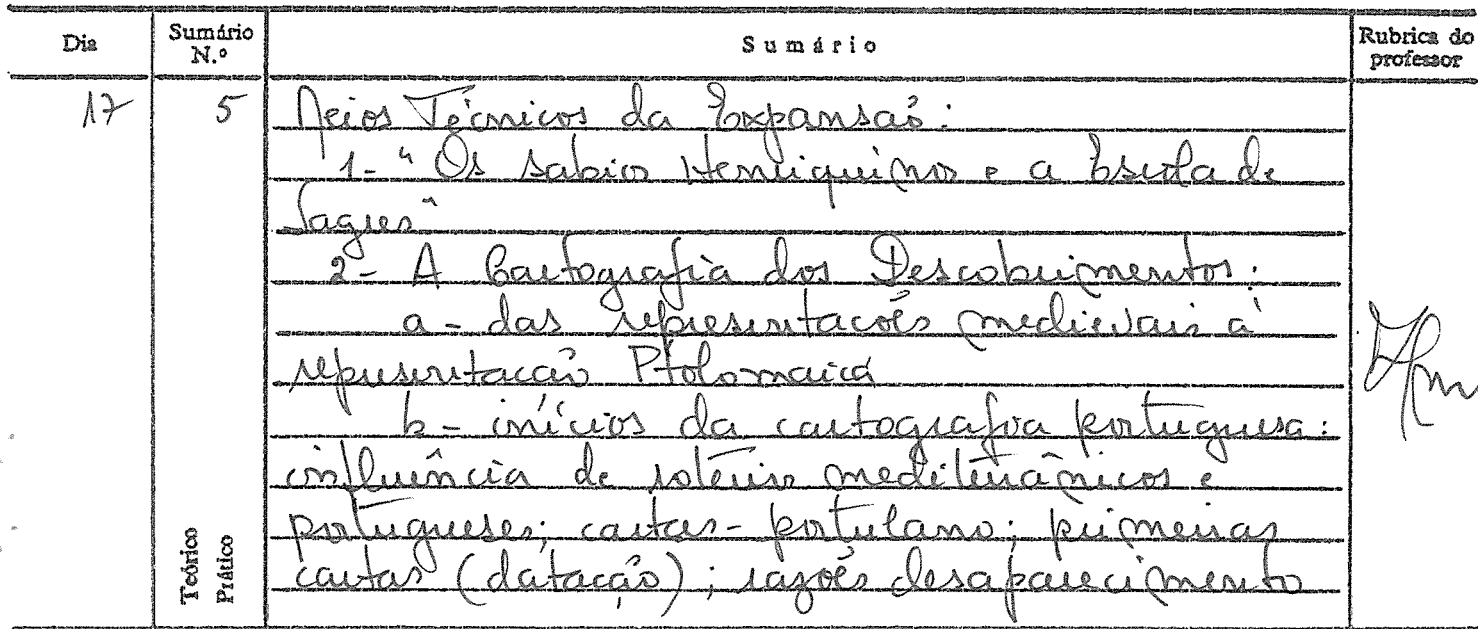 Dia Sumário N.º Sumário Rubrica do professor
17 5 Meios Técnicos da Expansão:
1- "Os sabios Henriquinos e a Escola de
Sagres"
2- A Cartografia dos Descobrimentos:
a- das representações medievais à
representação Ptolomaica
b- inícios da cartografia portuguesa:
influência de roteiros mediterrânicos e
portugueses; cartas-portulano; primeiras
cartas (datação); razões desaparecimento
Teórico
Prático